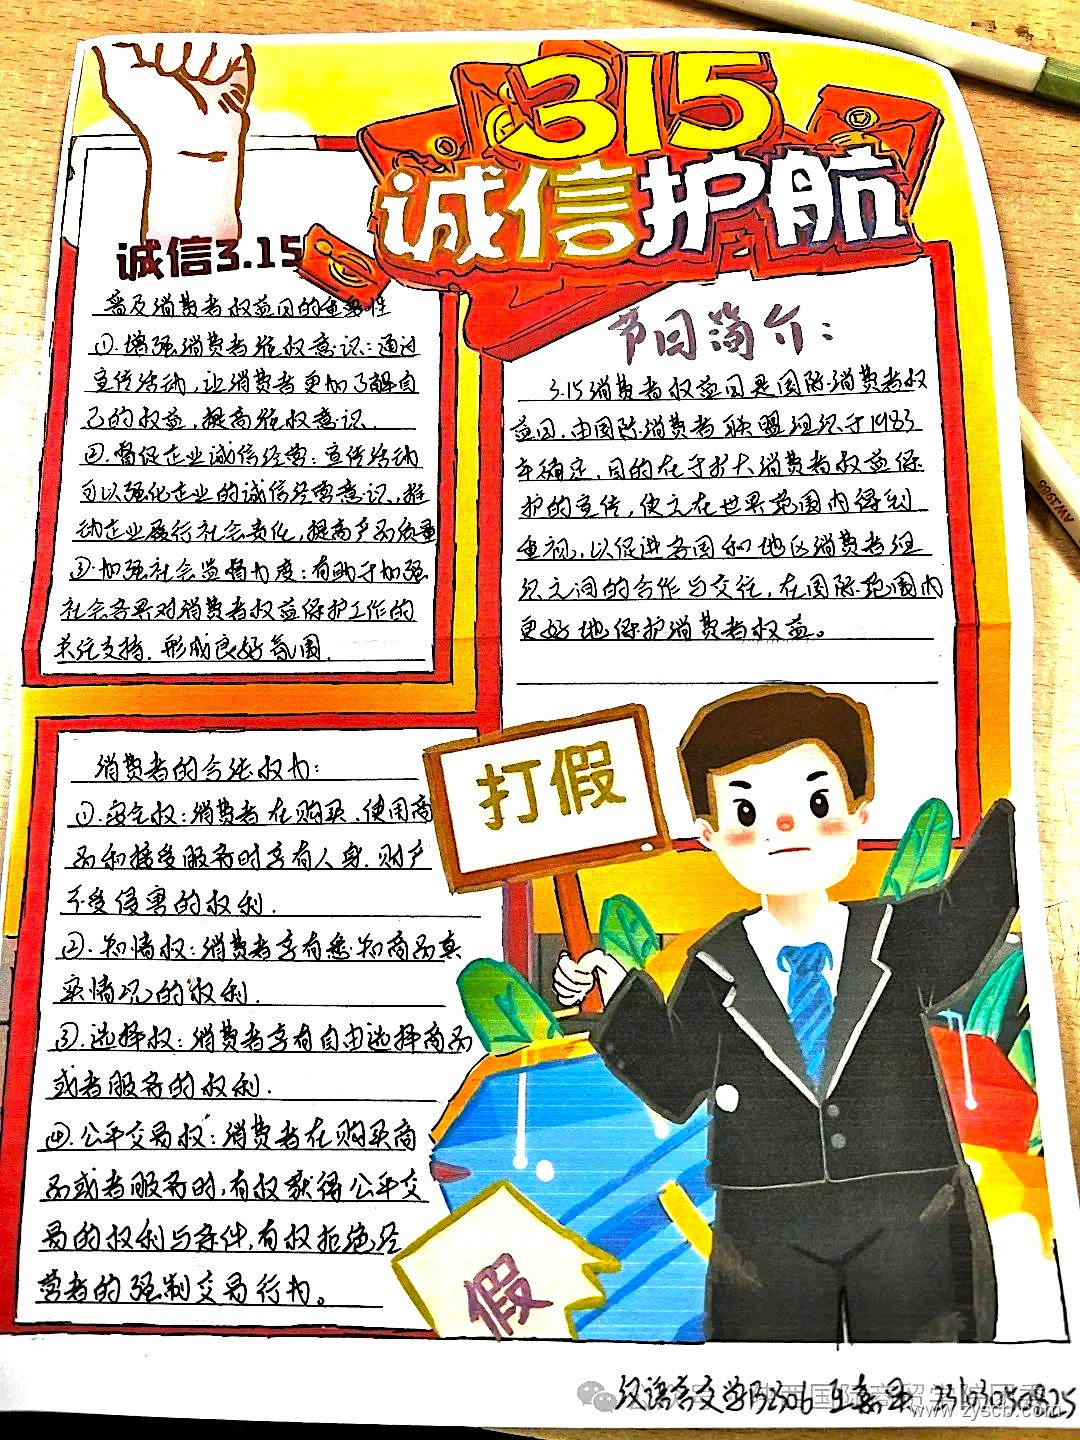 315
诚信护航
诚信3.15
普及消费者权益日的重要性
①.增强消费者维权意识:通过
宣传活动,让消费者更加了解自
己的权益,提高维权意识.
②.督促企业诚信经营:宣传活动
可以强化企业的诚信经营意识,推
动企业履行社会责任,提高产品质量
③.加强社会监督力度:有助于加强
社会各界对消费者权益保护工作的
关注支持.形成良好氛围.
节日简介:
3.15消费者权益日是国际消费者权
益日,由国际消费者联盟组织于1983
年确定,目的在于扩大消费者权益保
护的宣传,使之在世界范围内得到
重视,以促进各国和地区消费者组
织之间的合作与交往,在国际范围内
更好地保护消费者权益。
消费者的合法权力:
①.安全权:消费者在购买、使用商
品和接受服务时享有人身.财产
不受侵害的权利.
②.知情权:消费者享有悉知商品真
实情况的权利.
③.选择权:消费者享有自由选择商品
或者服务的权利.
④.公平交易权:消费者在购买商
品或者服务时,有权获得公平交
易的权利与条件,有权拒绝经
营者的强制交易行为。
打假
假
汉语言文学B2306
www.zyscb.com